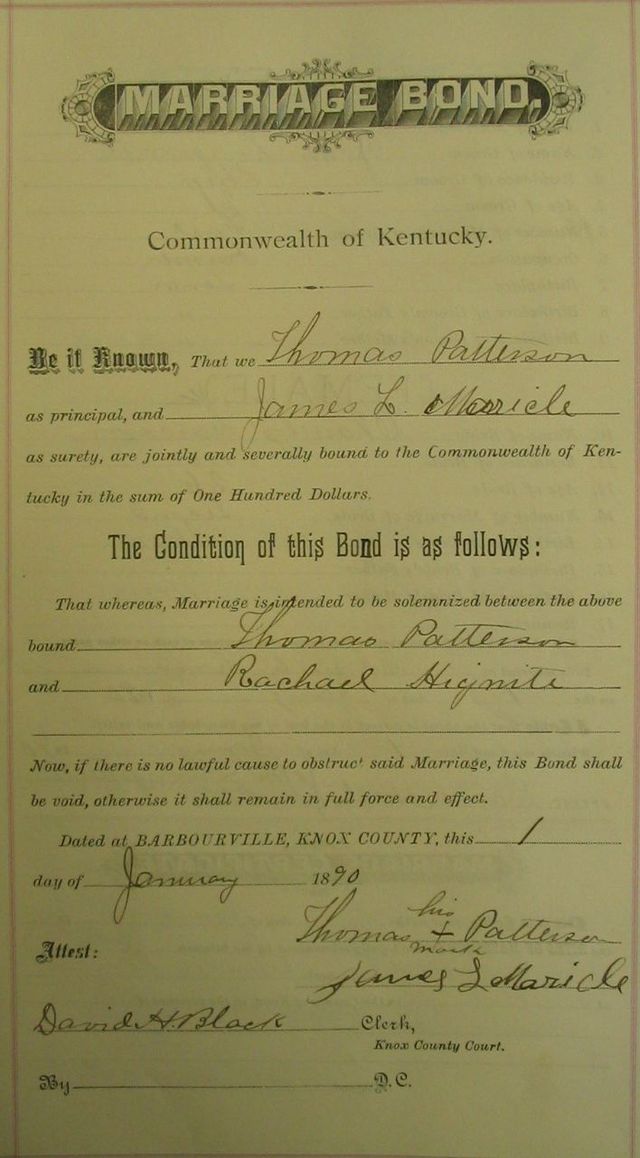 MARRIAGE BOND.
Commonwealth of Kentucky.
Be it Known, That we Thomas Patterson
as principal, and James L. Maricle
as surety, are jointly and severally bound to the Commonwealth of Ken-
tucky in the sum of One Hundred Dollars.
The Condition of this Bond is as follows:
That whereas, Marriage is intended to be solemnized between the above
bound Thomas Patterson
and Rachael Hignite
Now, if there is no lawful cause to obstruct said Marriage, this Bond shall
be void, otherwise it shall remain in full force and effect.
Dated at BARBOURVILLE, KNOX COUNTY, this 1
day of January 1890
his
Thomas + Patterson
mark
Attest:
James L Maricle
David H. Black Clerk,
Knox County Court.
By D.C.